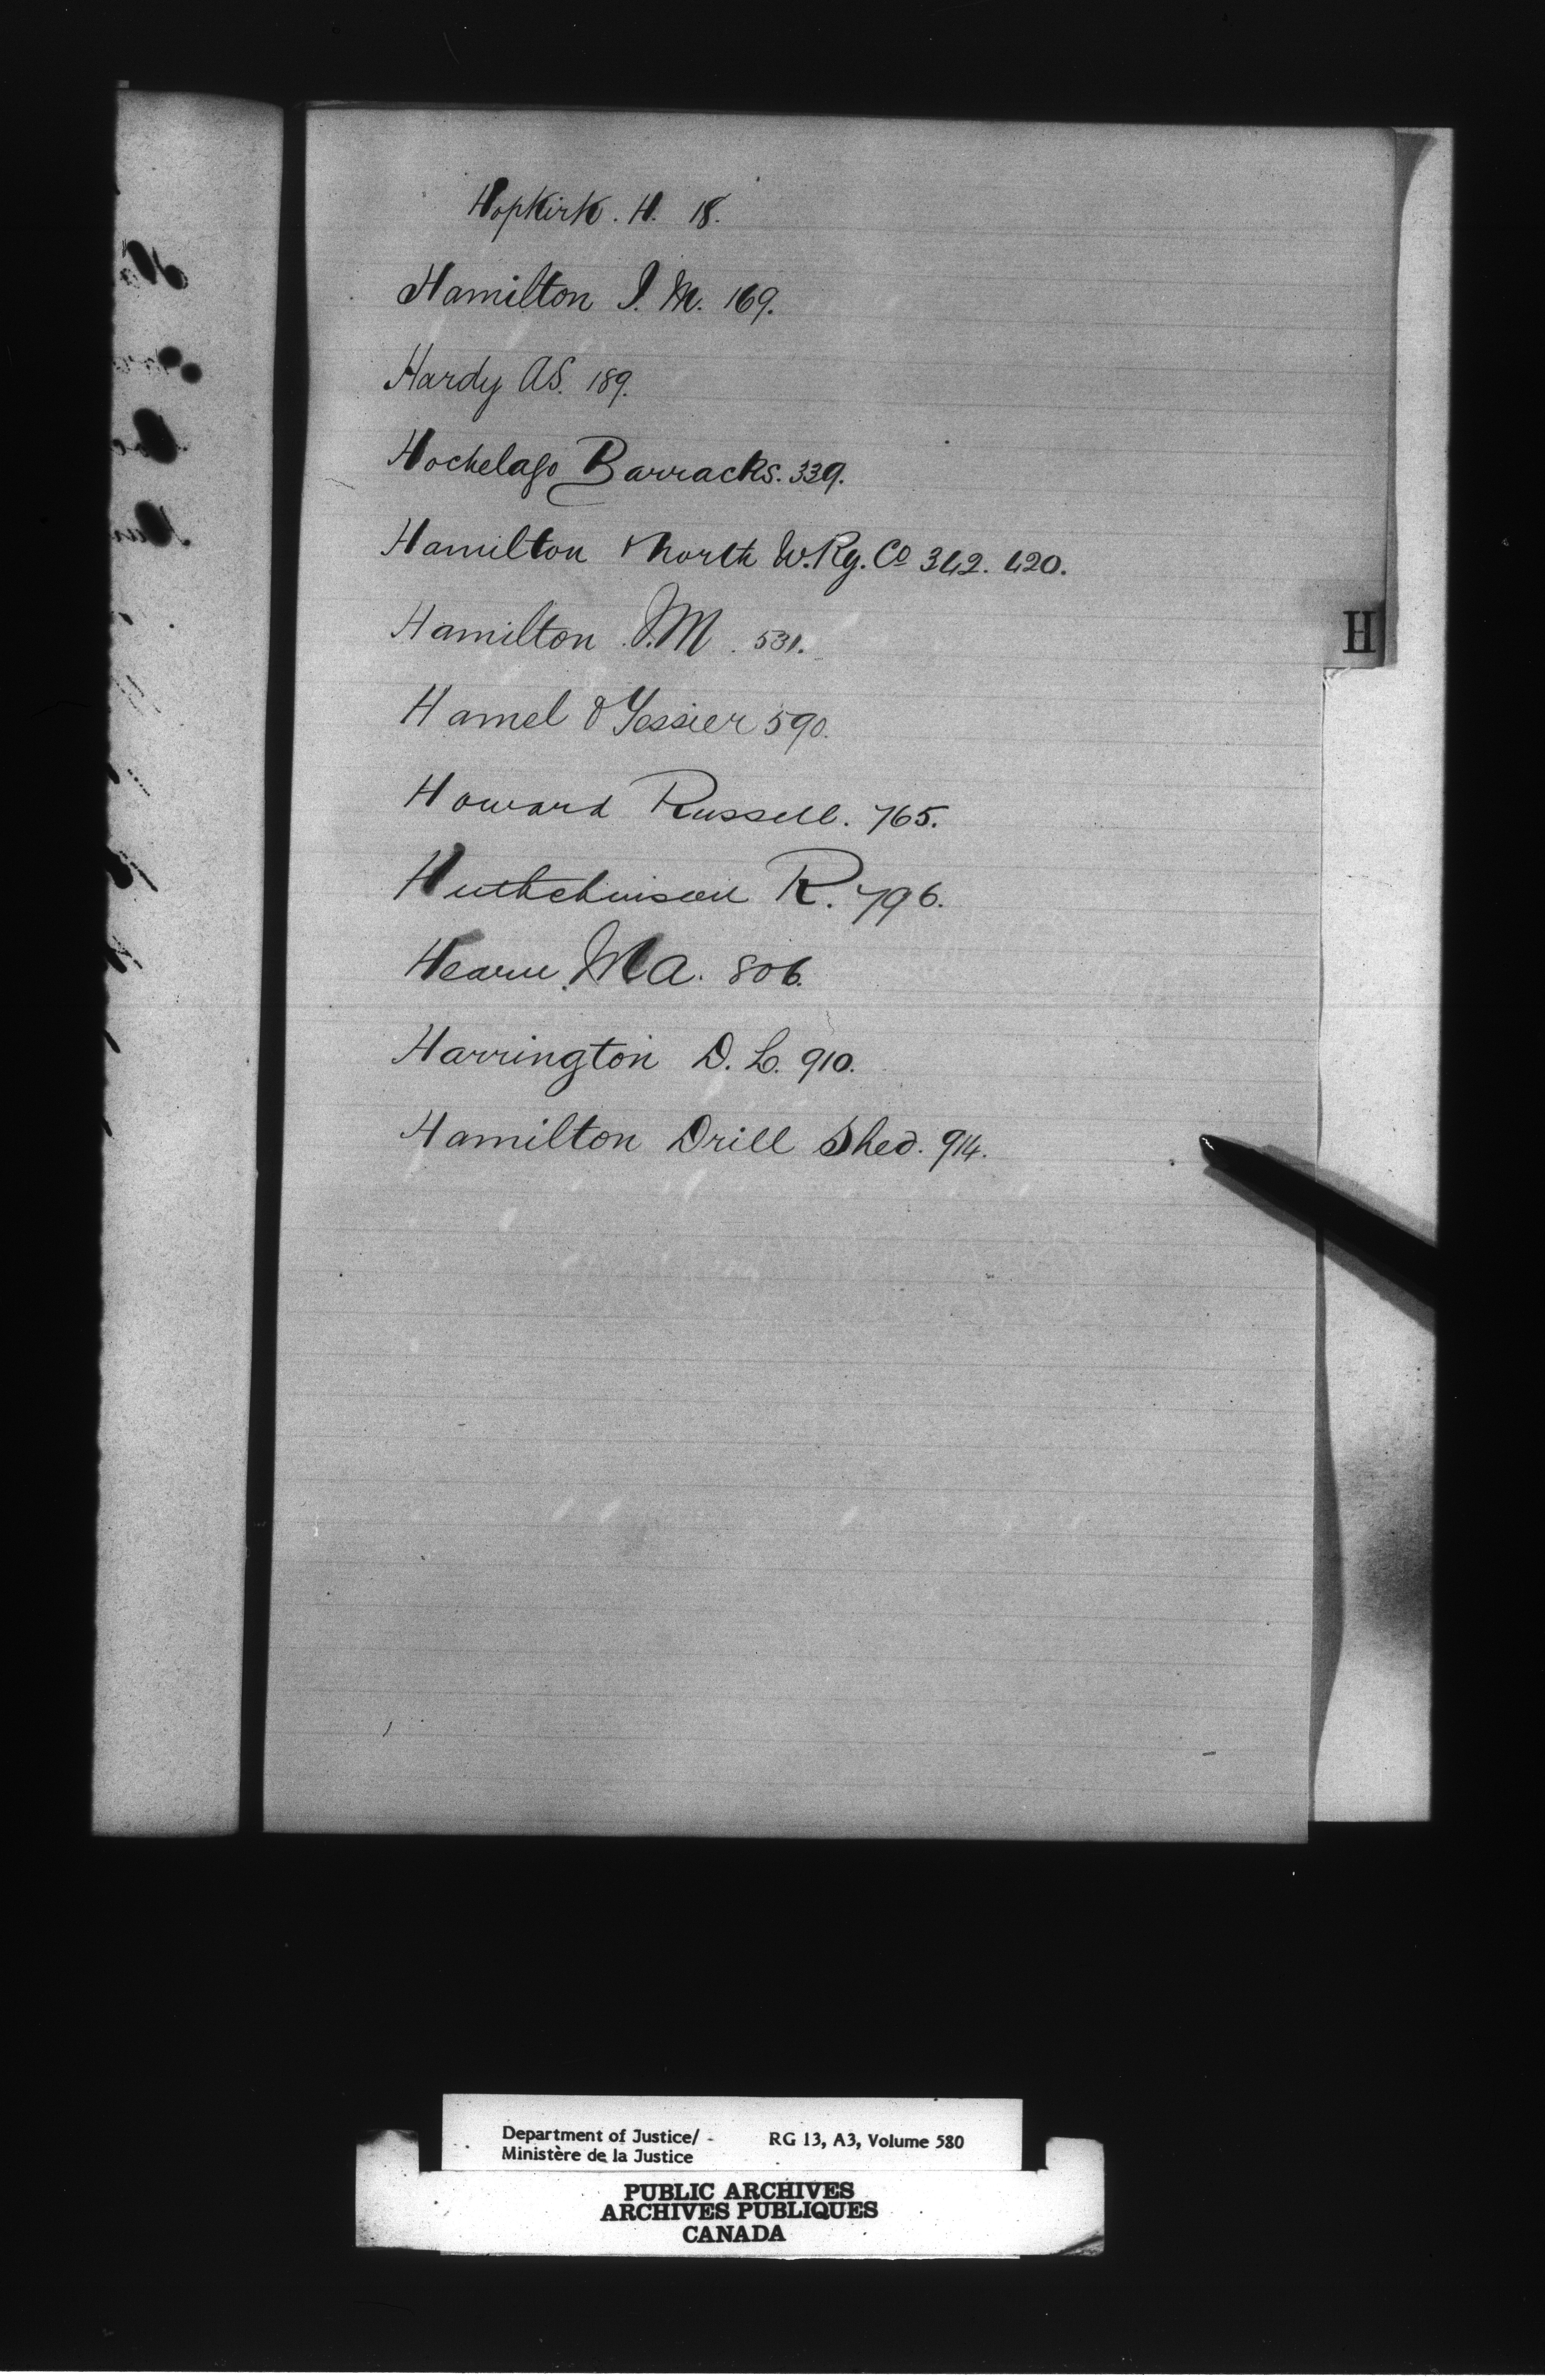 Hopkirk. H. 18.
Hamilton J. M. 169.
Hardy AS. 189.
Hochelago Barracks. 339.
Hamilton & North W. Ry. Co 342. 420.
H
Hamilton J. M. 531.
Hamel & Tessier 590.
Howard Russell. 765.
Huthchinson R. 796.
Hearn M A. 806.
Harrington D. L. 910.
Hamilton Drill Shed. 914.
Department of Justice/
Ministère de la Justice
RG 13, A3, Volume 580
PUBLIC ARCHIVES
ARCHIVES PUBLIQUES
CANADA